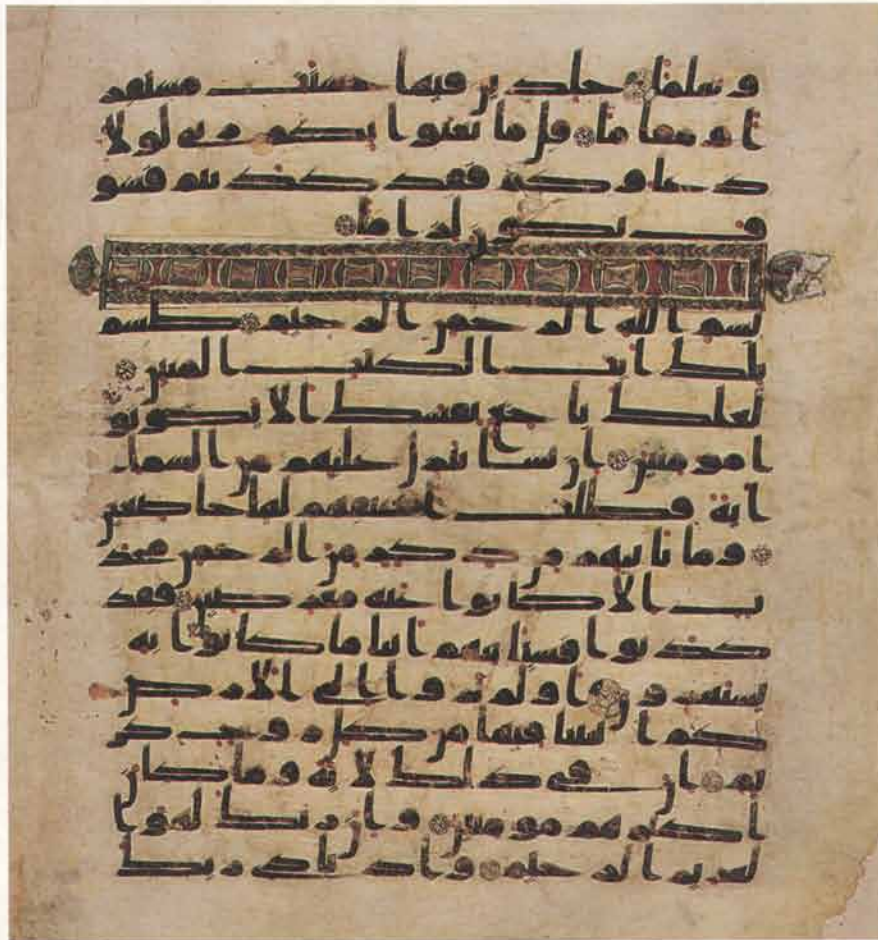 و سلما خلدين فيها حسنت مستقر
ا و مقاما قل ما يعبوا بكم ربي لولا
دعاوكم فقد كذبتم فسو
ف يكون لزاما
بسم الله الرحمن الرحيم طسم
تلك ايت الكتب المبين
لعلك باخع نفسك الا يكونو
ا مومنين ان نشا ننزل عليهم من السما
اية فظلت اعنقهم لها خاضعين
وما ياتيهم من ذكر من الرحمن محد
ث الا كانوا عنه معرضين فقد
كذبوا فسياتيهم انبا ما كانوا به
يستهزون اولم يروا الى الارض
كم انبتنا فيها من كل زوج كر
يم ان في ذلك لاية وما كان
اكثرهم مومنين وان ربك لهو ا
لعزيز الرحيم واذ نادى ربك